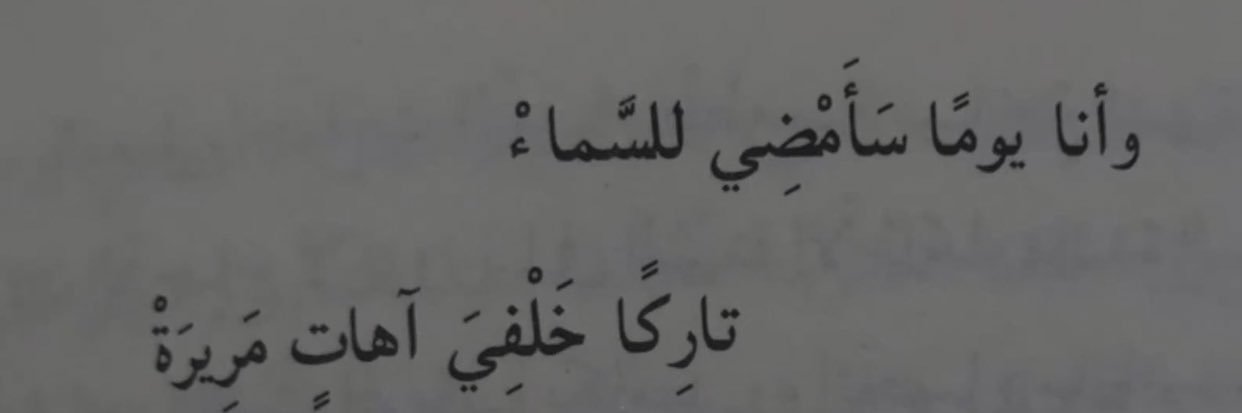 وأنا يومًا سَأَمْضِي للسَّماءْ
تارِكًا خَلْفِيَ آهاتٍ مَرِيرَةْ